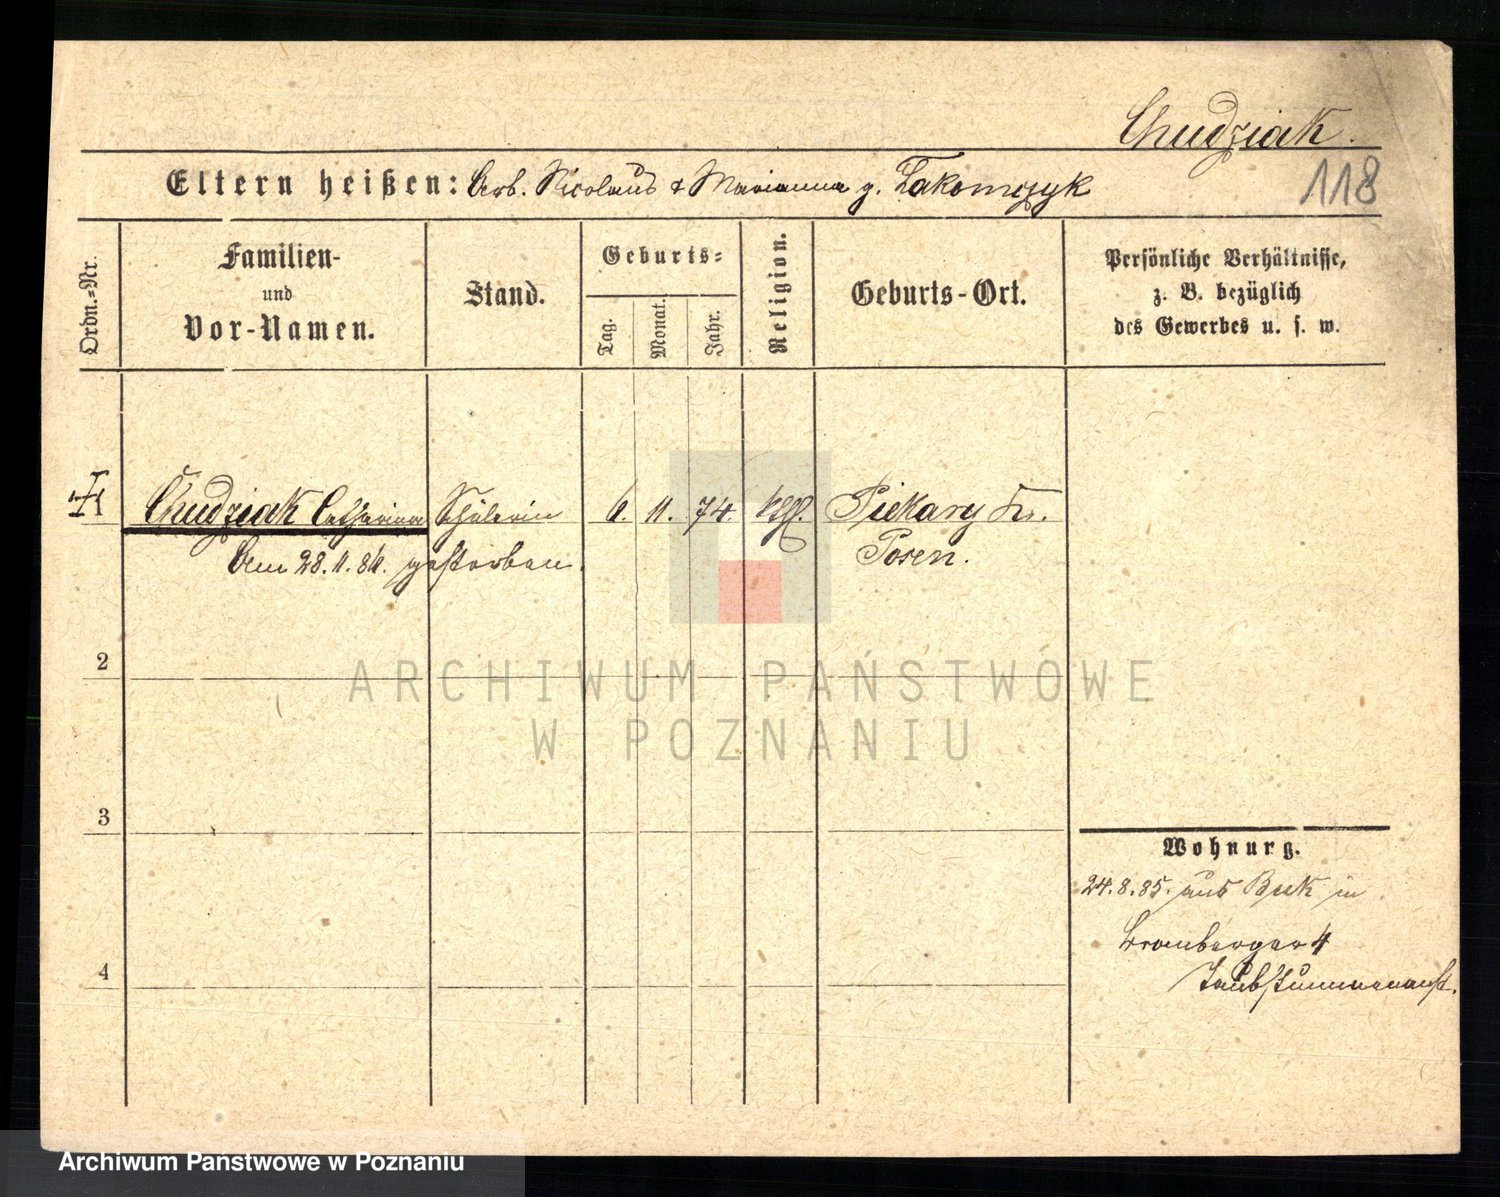 Chudziak.
118
Eltern heißen: Arb. Nicolaus & Marianna g. Takomczyk
Ordn.=Nr.
Familien-
und
Vor-Namen.
Stand.
Geburts=
Tag.
Monat.
Jahr.
Religion.
Geburts-Ort.
Persönliche Verhältnisse,
z. B. bezüglich
des Gewerbes u. s. w.
Chudziak Catharina Schülerin 6. 11. 74. kth. Piekary Kr.
Posen.
Am 28.11.86. gestorben.
2
3
4
Wohnung.
24.8.85. aus Buk in
Bromberger 4
Taubstummenanst.
ARCHIWUM PAŃSTWOWE
W POZNANIU
Archiwum Państwowe w Poznaniu